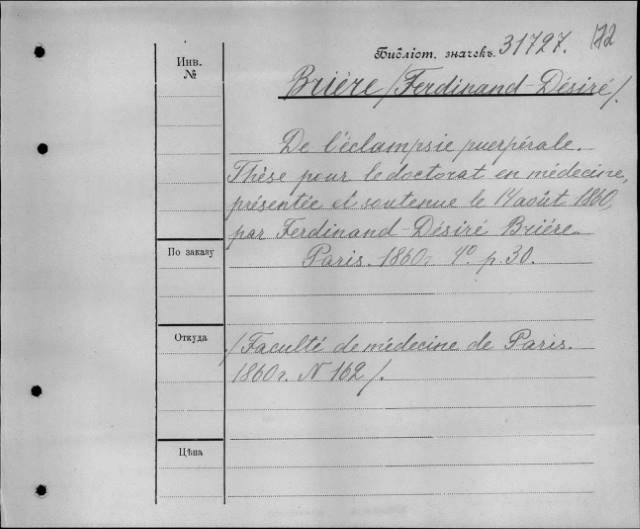 Инв. №
Библіот. значекъ 31727.
Briére /Ferdinand-Désiré/.
De l'éclampsie puerpérale.
Thèse pour le doctorat en médecine,
présentée et soutenue le 14 août 1860,
par Ferdinand-Désiré Briére.
Paris. 1860г. 4º. p. 30.
По заказу
Откуда
/Faculté de médecine de Paris.
1860г. N 162/.
Цѣна